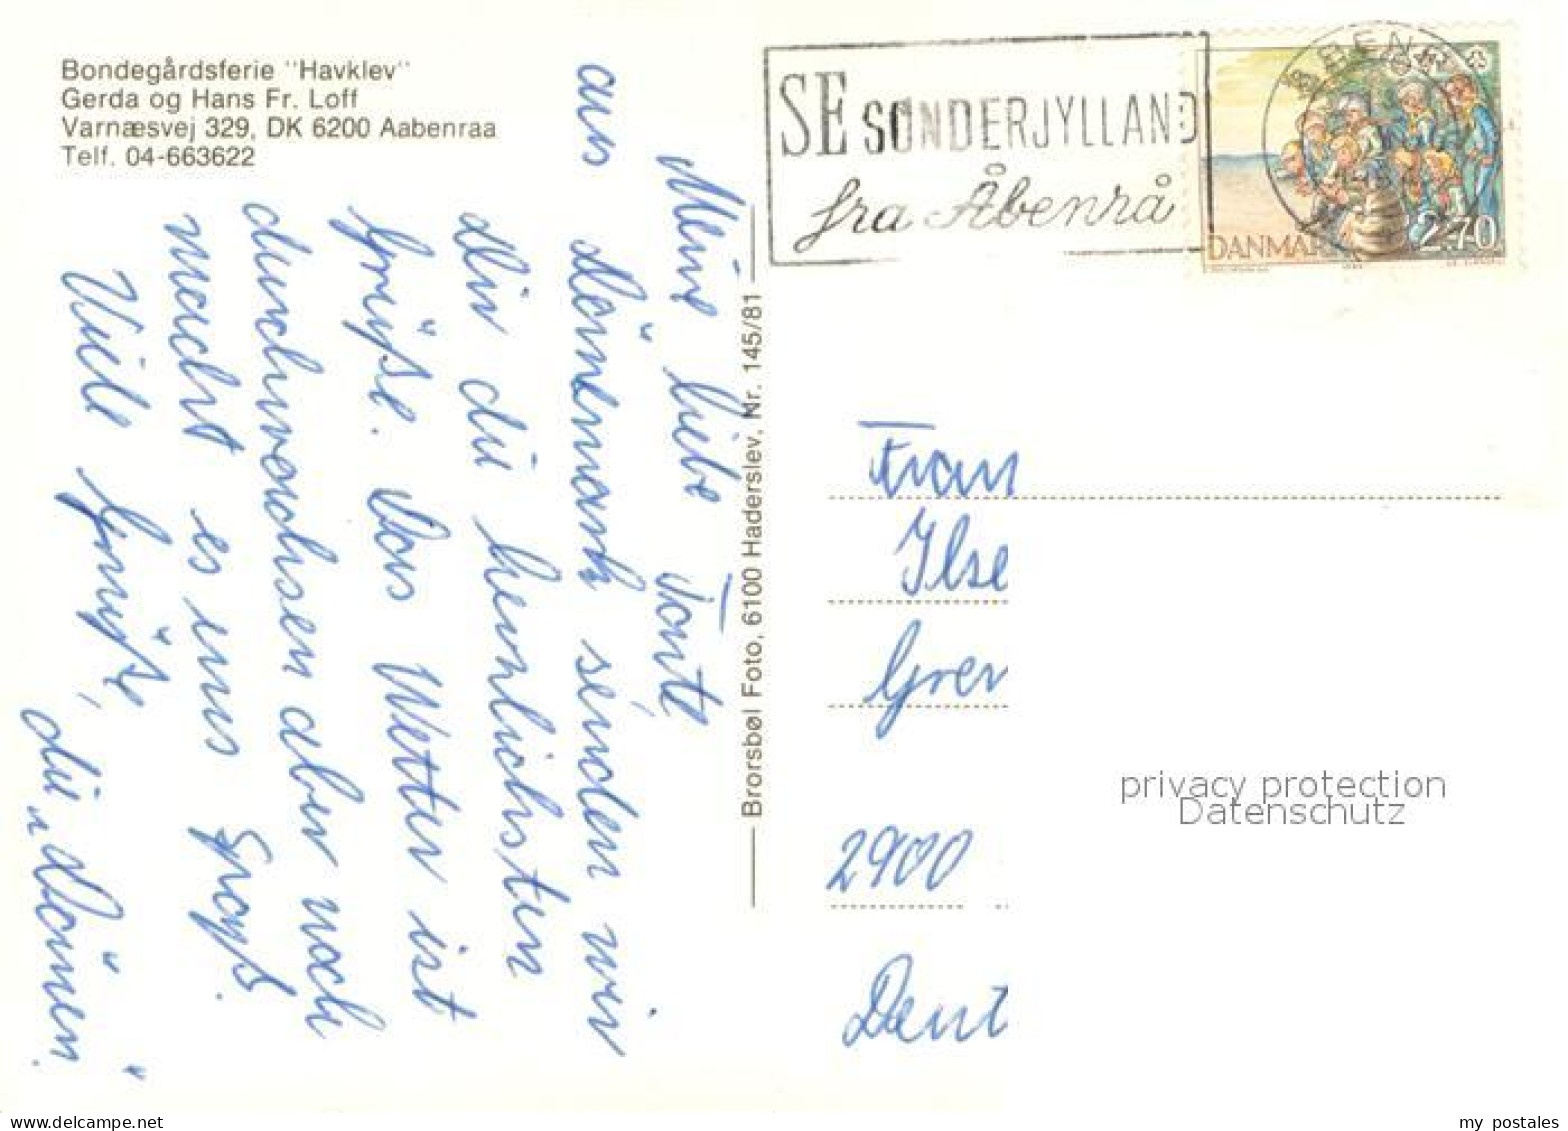 Bondegårdsferie "Havklev"
Gerda og Hans Fr. Loff
Varnæsvej 329, DK 6200 Aabenraa
Telf. 04-663622
Meine liebe Tante
aus Dänemark senden wir
dir die herzlichsten
Grüße. Das Wetter ist
durchwachsen aber noch
macht es uns Spaß.
Viele Grüße,
die „Dänen"
Brorsbøl Foto, 6100 Haderslev, Nr. 145/81
SE SØNDERJYLLAND
fra Åbenrå
DANMARK
2.70
Frau
Ilse
Grev
2900
Deut
privacy protection
Datenschutz
my postales